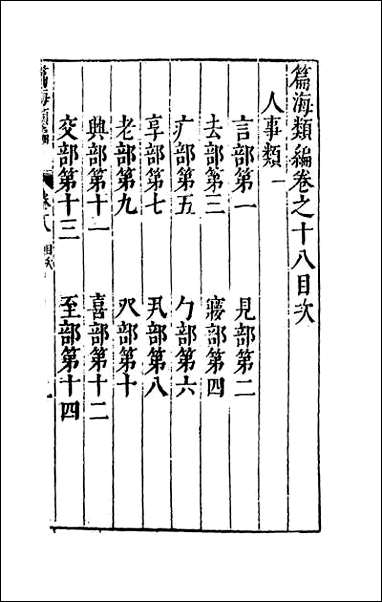 篇海類編卷之十八目次
人事類一
言部第一　見部第二
去部第三　㝱部第四
疒部第五　勹部第六
享部第七　丮部第八
老部第九　癶部第十
興部第十一　喜部第十二
交部第十三　至部第十四
篇海類編　卷十八　目次　一